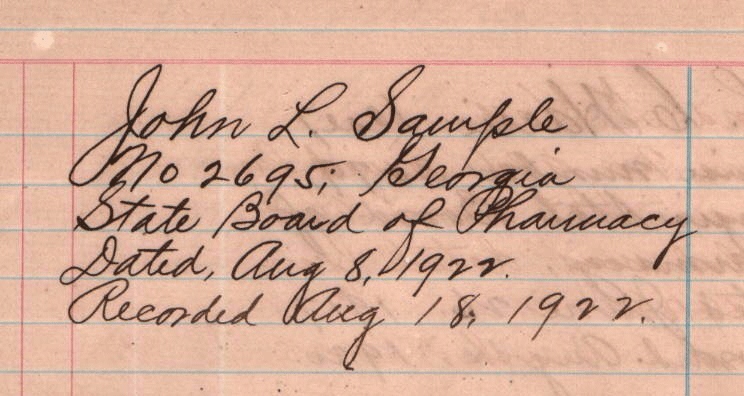 John L. Sample
No 2695; Georgia
State Board of Pharmacy
Dated, Aug 8, 1922.
Recorded Aug 18, 1922.